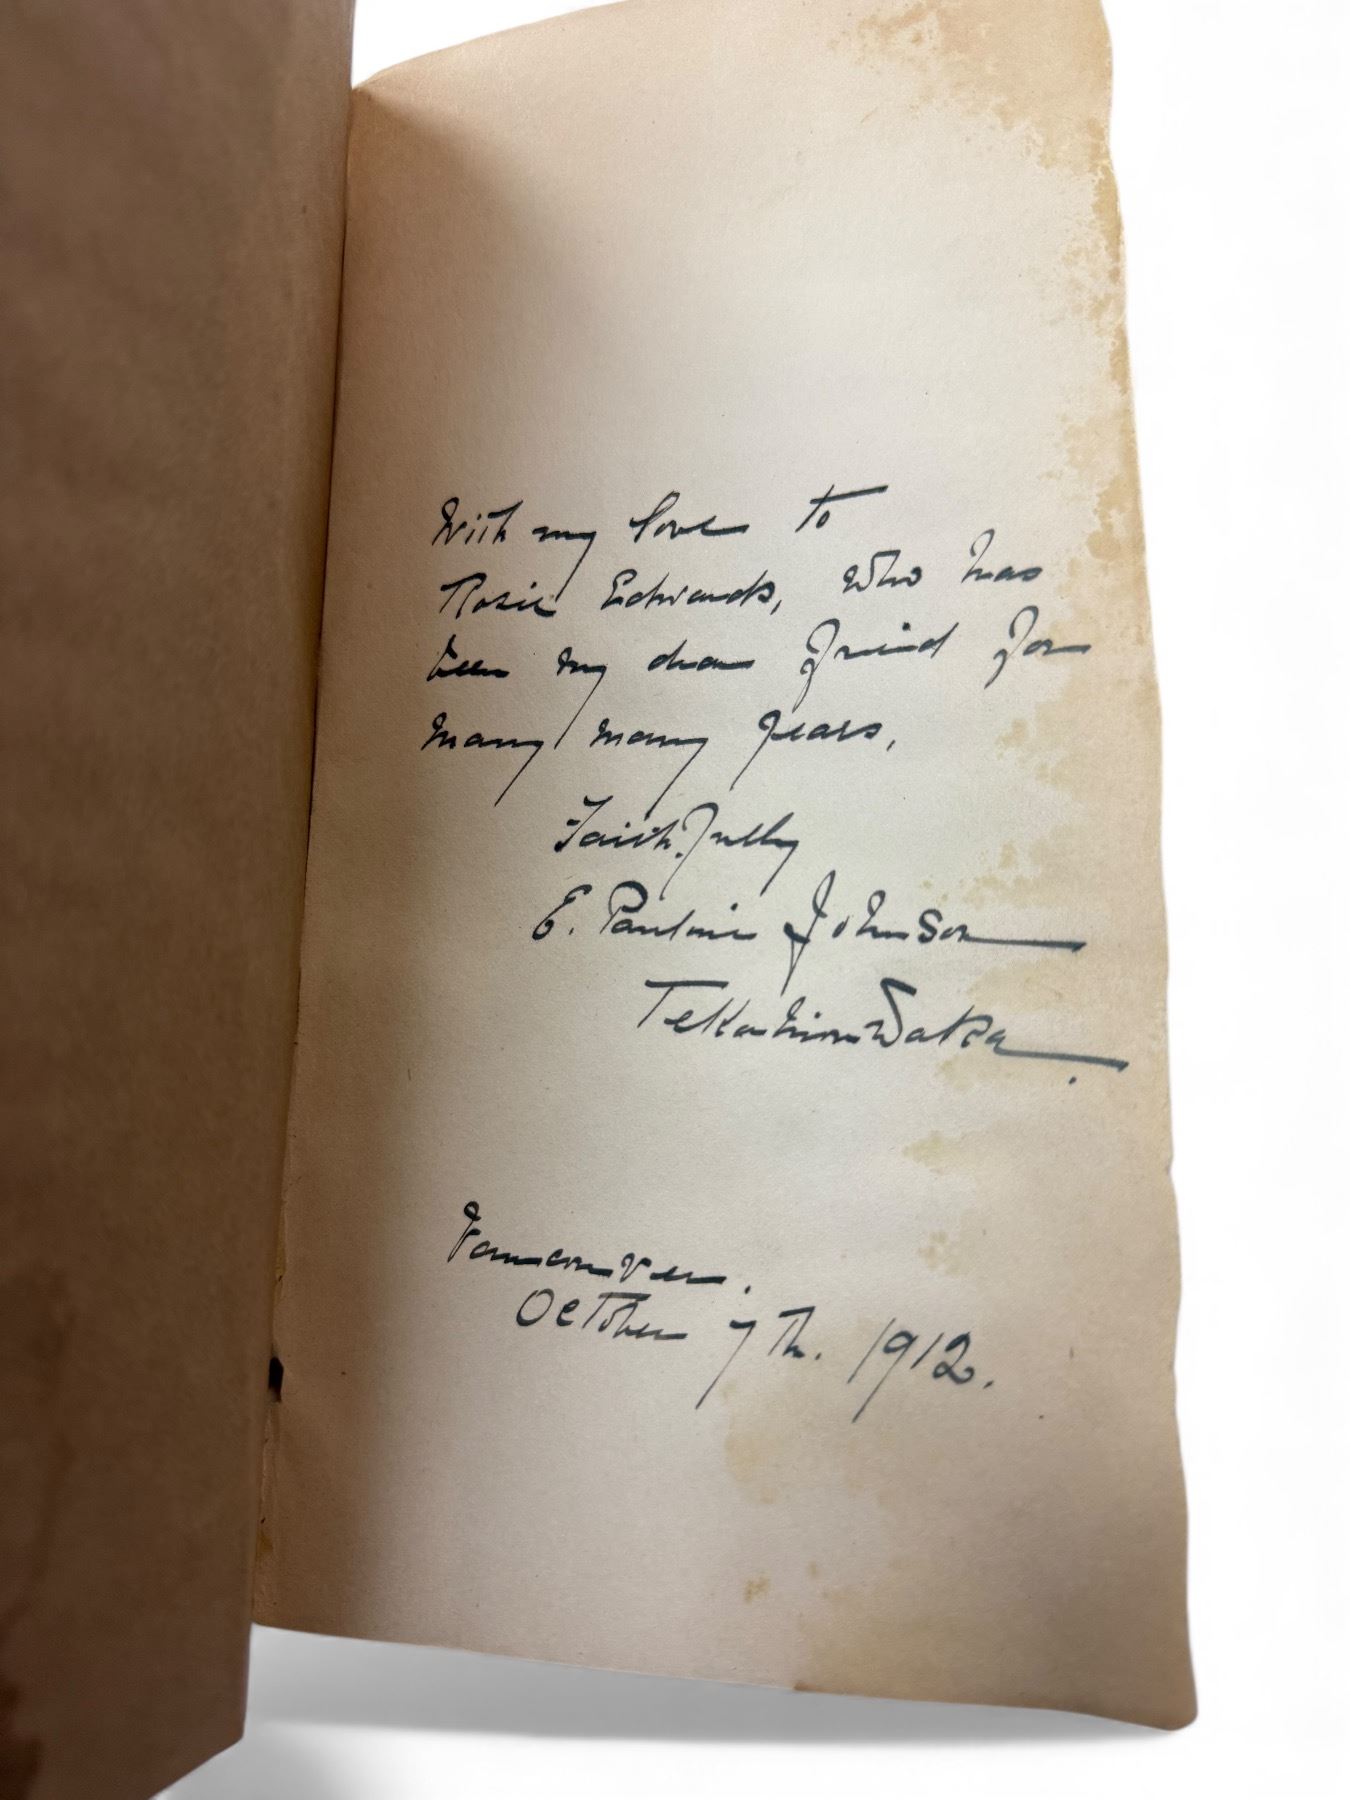 With my love to
Rosie Edwards, who has
been my dear friend for
many many years,
Faithfully
E. Pauline Johnson
Tekahionwaka.
Vancouver.
October 7th. 1912.